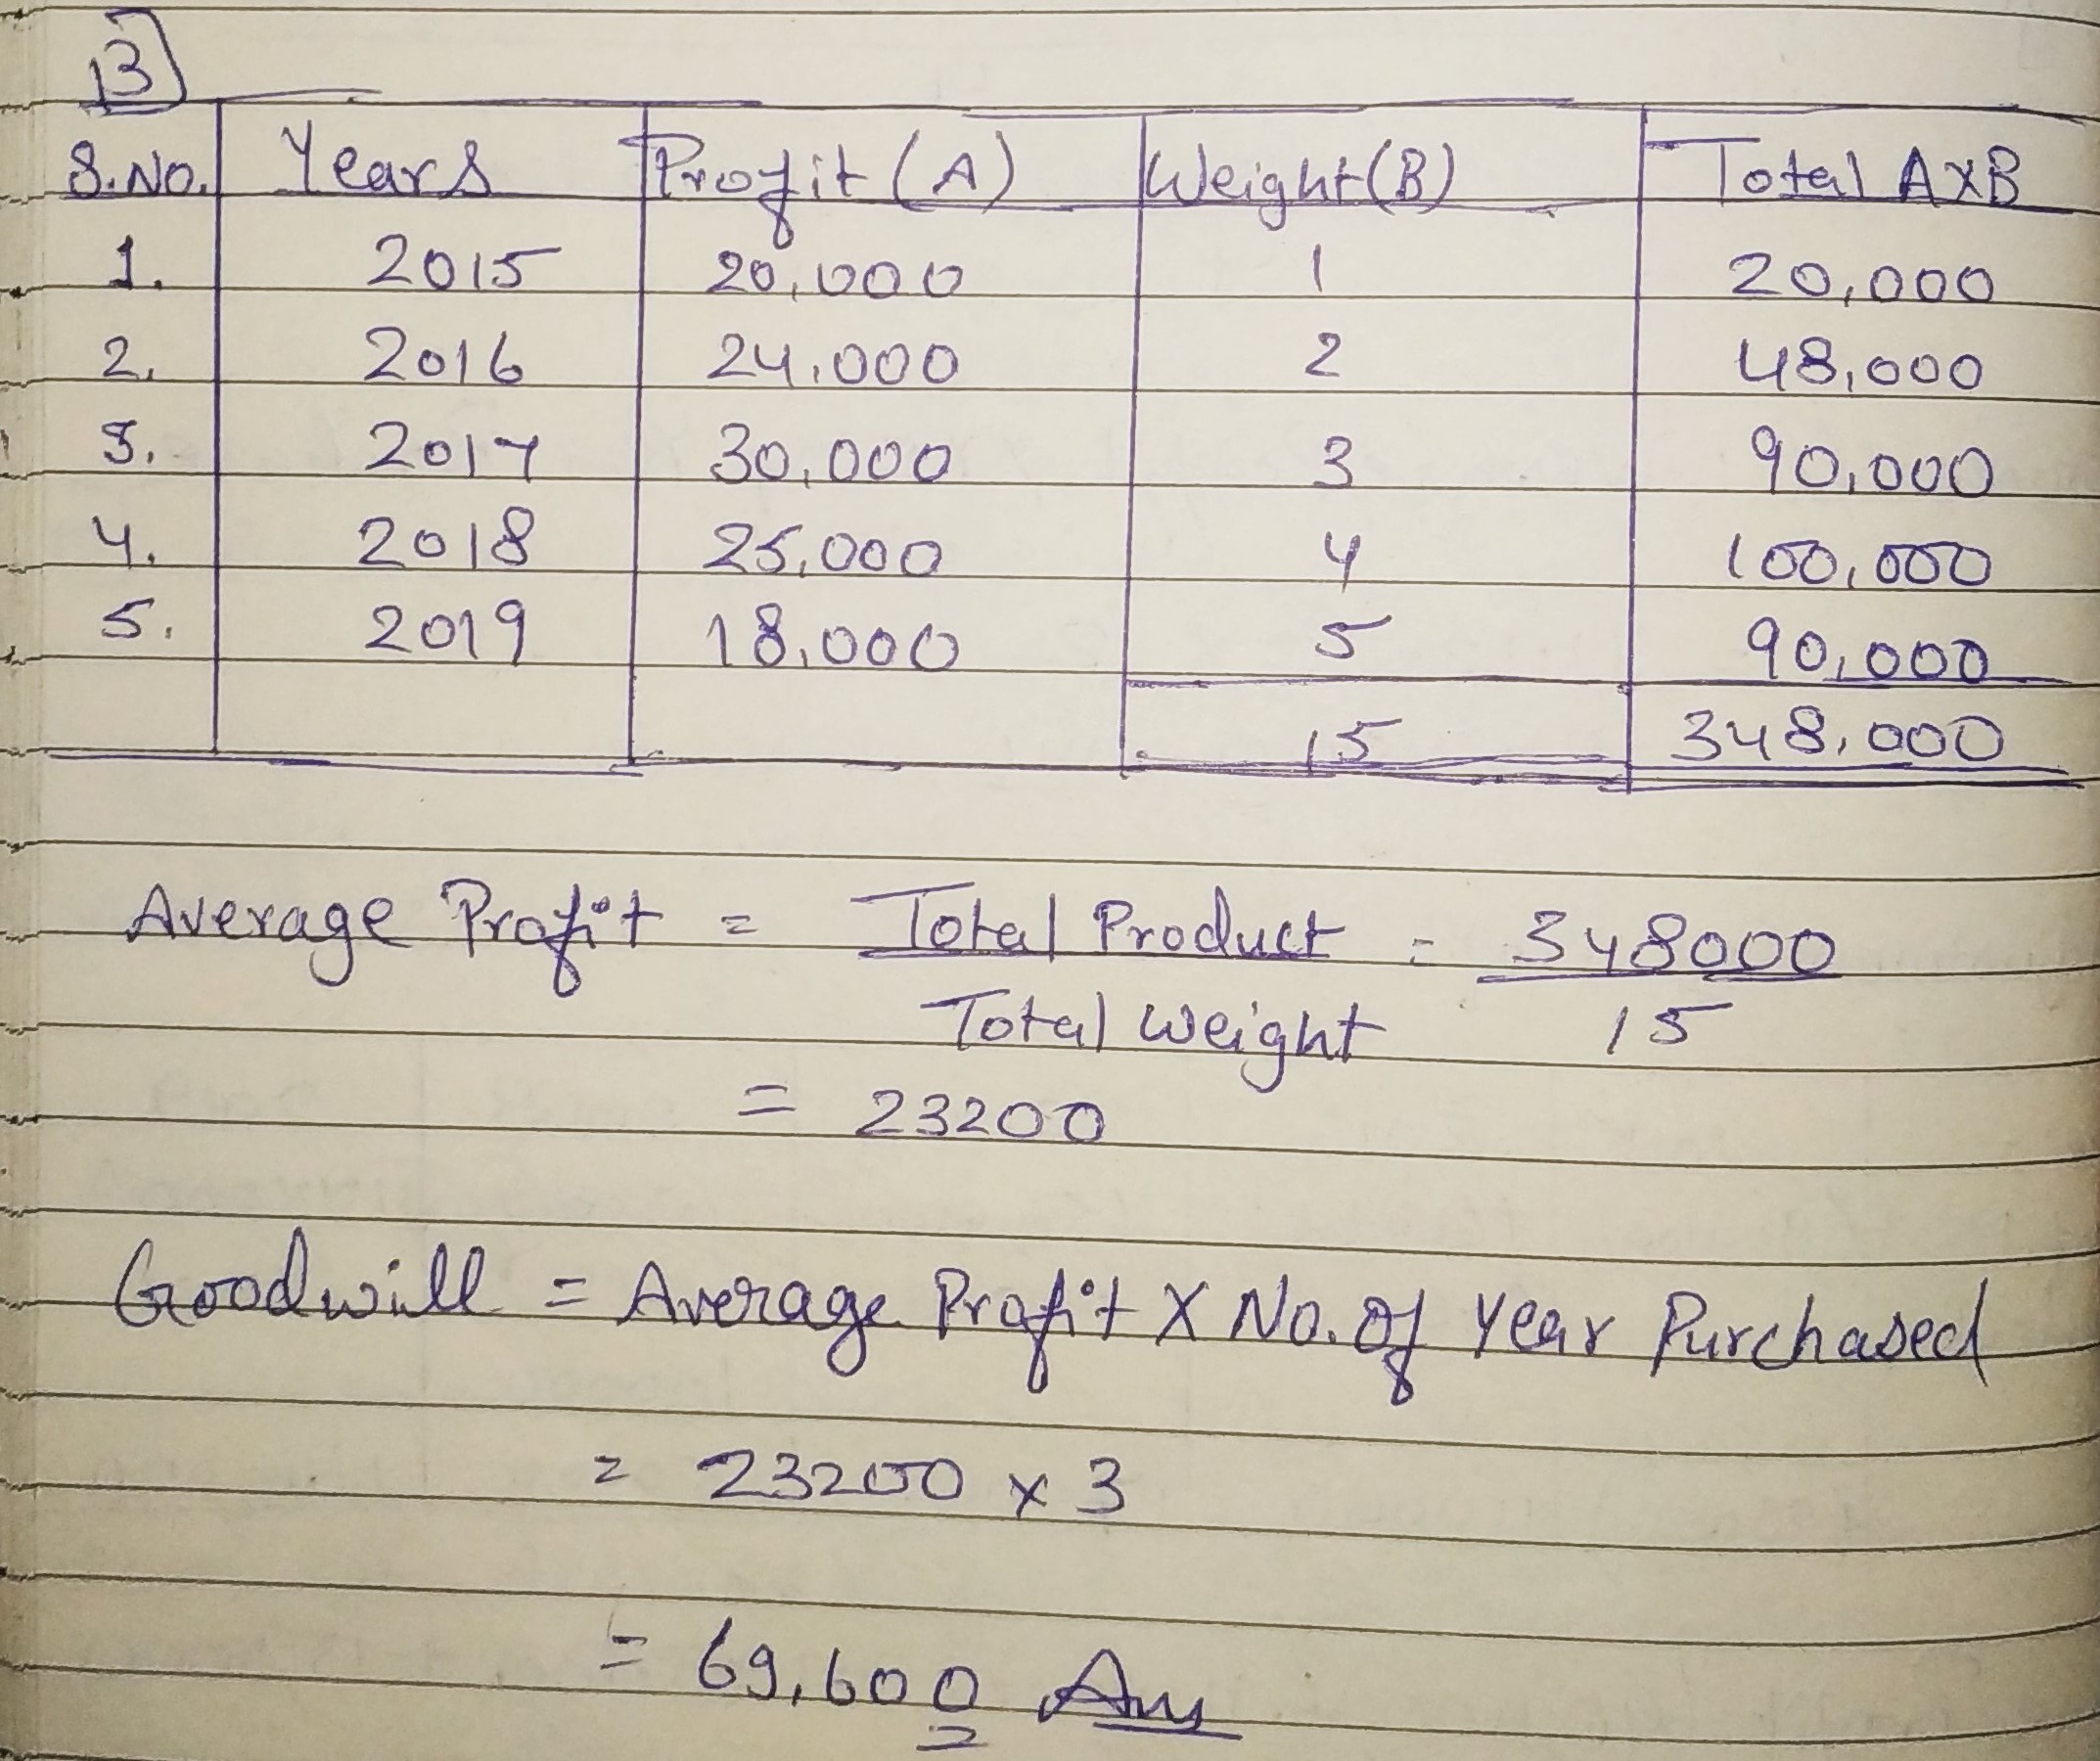 13
S.No. Years Profit (A) Weight(B) Total AXB
1. 2015 20,000 1 20,000
2. 2016 24,000 2 48,000
3. 2017 30,000 3 90,000
4. 2018 25,000 4 100,000
5. 2019 18,000 5 90,000
15 348,000
Average Profit = Total Product = 348000
Total Weight 15
= 23200
Goodwill = Average Profit X No. of Year Purchased
= 23200 x 3
= 69,600 Ans